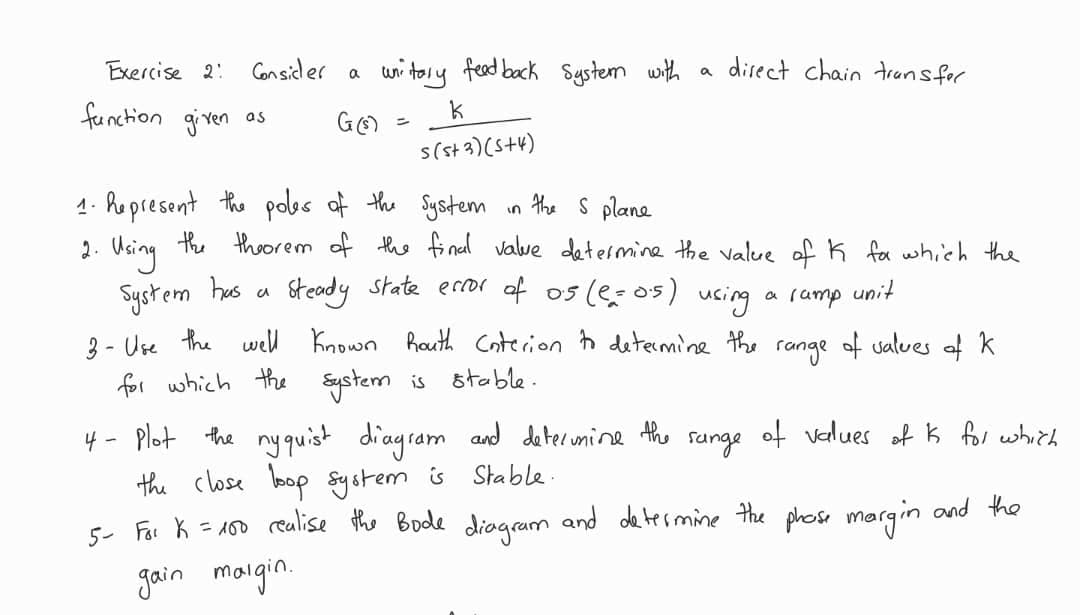 Exercise 2: Consider a unitary feed back system with a direct chain transfer
function given as G(s) = k / s(s+3)(s+4)
1. Represent the poles of the system in the S plane
2. Using the theorem of the final value determine the value of K for which the
System has a steady state error of 0.5 (e = 0.5) using a ramp unit
3 - Use the well known Routh Criterion to determine the range of values of k
for which the system is stable.
4 - Plot the nyquist diagram and determine the range of values of k for which
the close loop system is stable.
5 - For K = 100 realise the Bode diagram and determine the phase margin and the
gain margin.